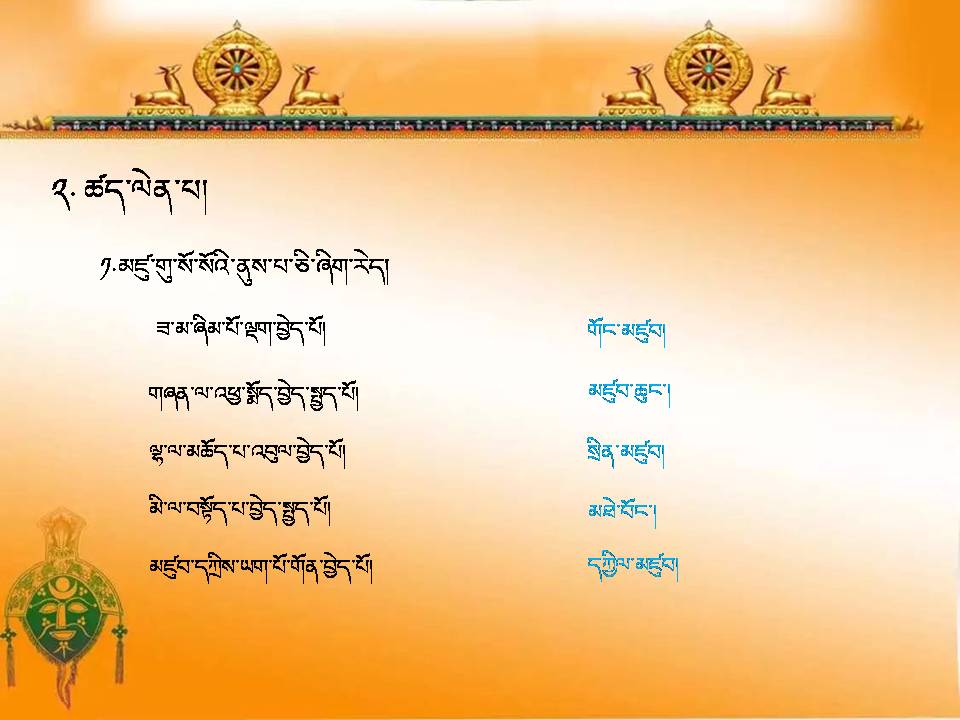 ༢. ཚད་ལེན་པ།
༡.མཛུ་གུ་སོ་སོའི་ནུས་པ་ཅི་ཞིག་རེད།
ཟ་མ་ཞིམ་པོ་ལྡག་བྱེད་པོ། གོང་མཛུབ།
གཞན་ལ་འཕྱ་སྨོད་བྱེད་སྤྱད་པོ། མཛུབ་ཆུང་།
ལྷ་ལ་མཆོད་པ་འབུལ་བྱེད་པོ། སྲིན་མཛུབ།
མི་ལ་བསྟོད་པ་བྱེད་སྤྱད་པོ། མཐེ་བོང་།
མཛུབ་དཀྲིས་ཡག་པོ་གོན་བྱེད་པོ། དཀྱིལ་མཛུབ།